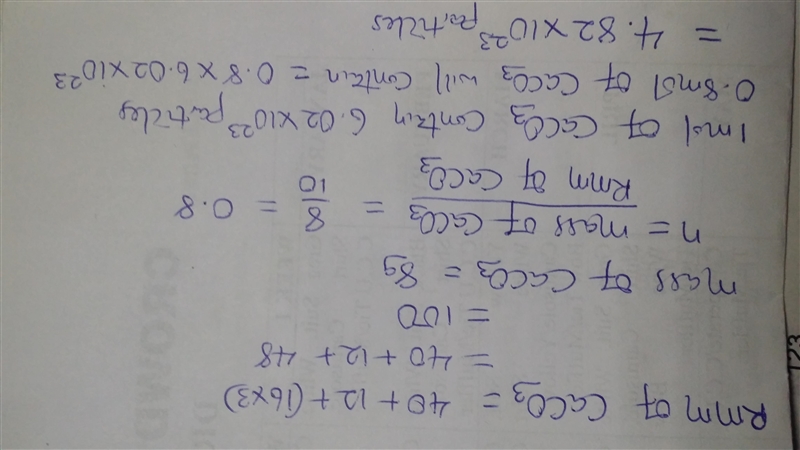 Rmm of CaCO₃ = 40 + 12 + (16×3)
= 40 + 12 + 48
= 100
mass of CaCO₃ = 8g
n = mass of CaCO₃ / Rmm of CaCO₃ = 8/10 = 0.8
1mol of CaCO₃ contain 6.02×10²³ particles
0.8mol of CaCO₃ will contain = 0.8 × 6.02×10²³
= 4.82×10²³ particles
CROWD
123